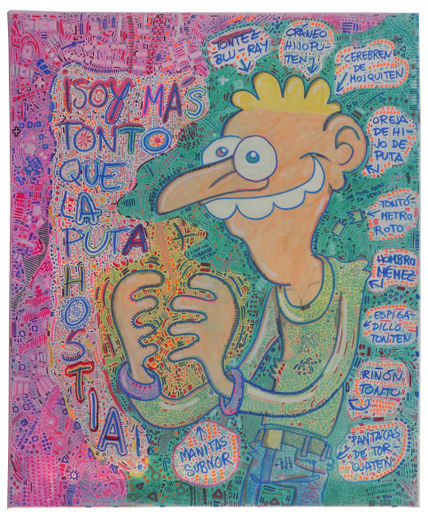 ¡SOY MÁS
TONTO
QUE
LA
PUTA
HOSTIA!
TONTEZ
BLU-RAY
CRÁNEO
HIJOPU-
TEN
CEREBREN
DE
MOIQUITEN
OREJA
DE HI-
JO DE
PUTA
TONTÓ-
METRO
ROTO
HOMBRO
MÉNEZ
ESPIGA-
DILLO
TONTEN
RIÑÓN
TONTO
PANTACAS
DE TOR-
CUATEN
MANITAS
SUBNOR